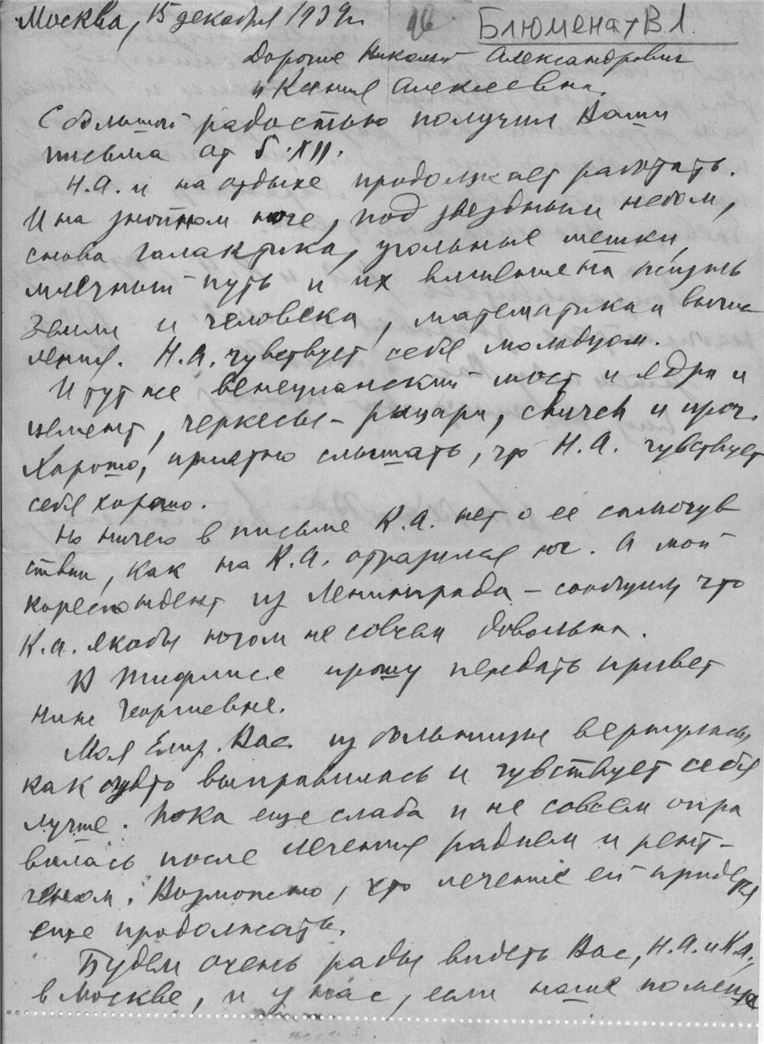 Москва, 15 декабря 1939 г. 16 Блюменат В.Л.
Дорогие Николай Александрович
и Ксения Алексеевна.
С большой радостью получил Ваши
письма от 5.XII.
Н.А. и на отдыхе продолжает работать.
И на знойном юге, под звездным небом,
снова галактика, угольные мешки,
млечный путь и их влияние на жизнь
Земли и человека, математика и вычис
ления. Н.А. чувствует себя молодцом.
И тут же венецианский мост и ядри и
цемент, черкесы – рыцари, и проч.
Хорошо, приятно слышать, что Н.А. чувствует
себя хорошо.
Но ничего в письме К.А. нет о ее самочув
ствии, как на К.А. отразился юг. А мой
кореспондент из Ленинграда – сообщил, что
К.А. якобы югом не совсем довольна.
В Тифлисе прошу передать привет
Нине Георгиевне.
Моя Елиз. Вас. из больницы вернулась,
как будто выправилась и чувствует себя
лучше. Пока еще слаба и не совсем опра
вилась после лечения радием и рент-
геном. Возможно, что лечение ей придется
еще продолжать.
Будем очень рады видеть Вас, Н.А. и К.А.,
в Москве, и у нас, если наше помеще